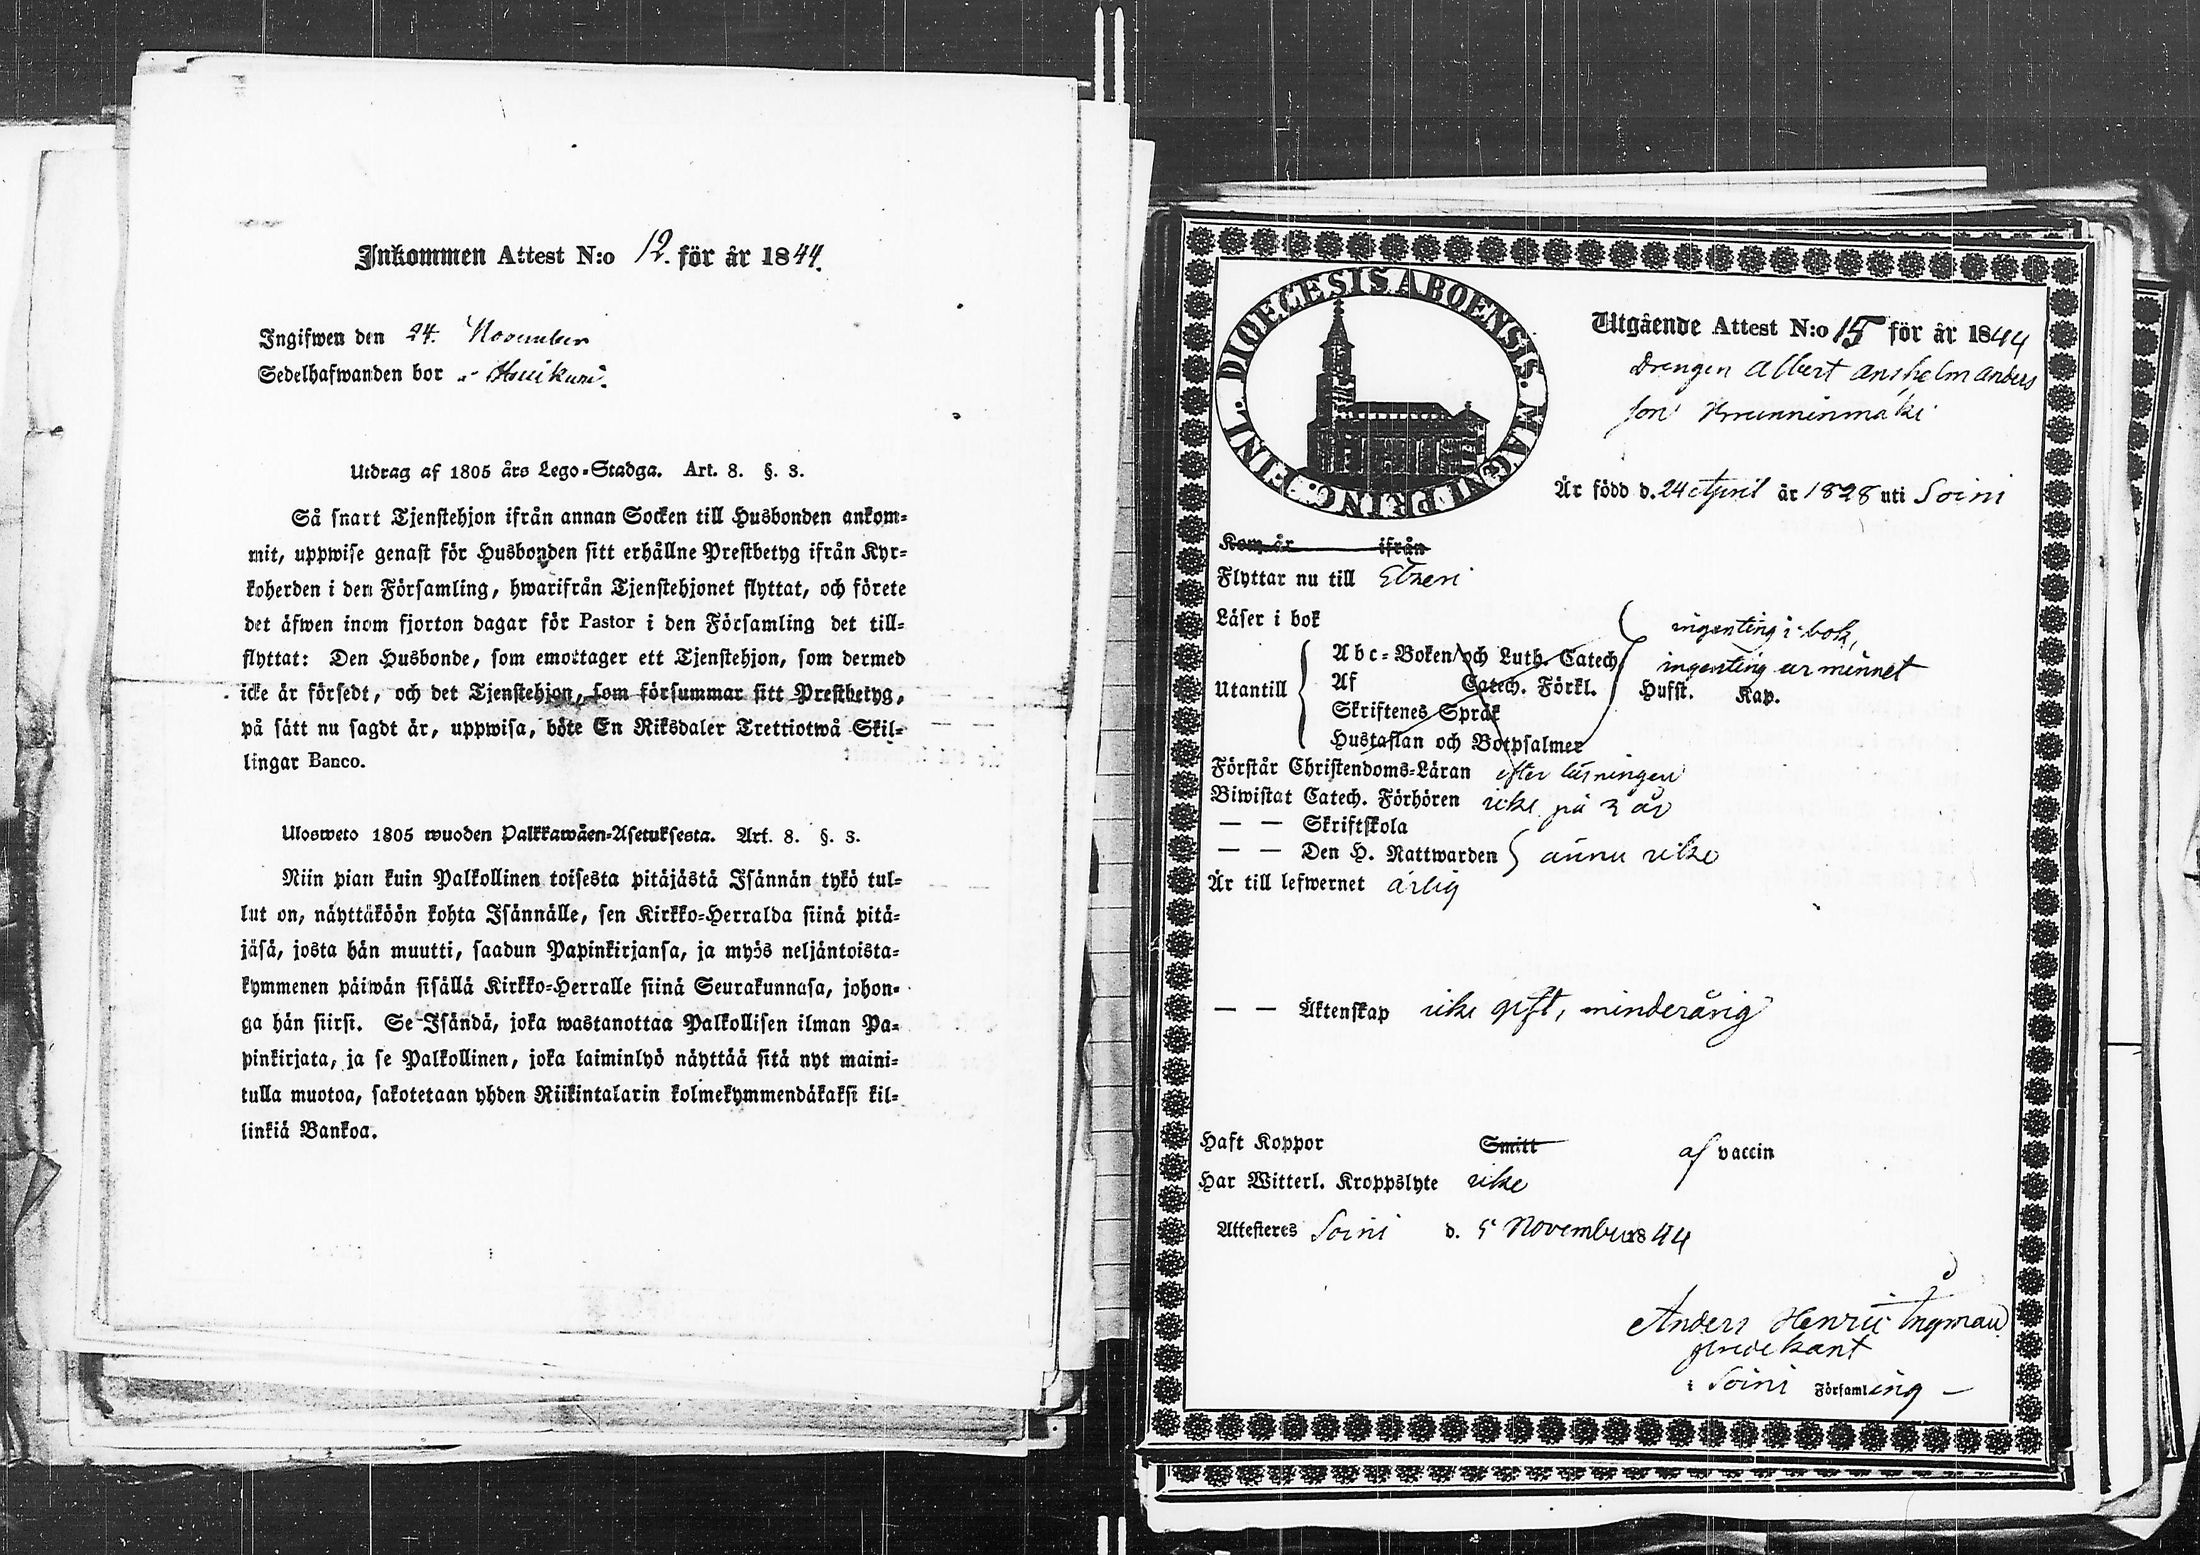 Inkommen Attest N:o 12. för år 1844.
Ingifwen den 24. November
Sedelhafwanden bor
Utdrag af 1805 års Lego-Stadga. Art. 8. §. 3.
Så snart Tjenstehjon ifrån annan Socken till Husbonden ankom-
mit, uppwise genast för Husbonden sitt erhållne Prestbetyg ifrån Kyr-
koherden i den Församling, hwarifrån Tjenstehjonet flyttat, och förete
det äfwen inom fjorton dagar för Pastor i den Församling det till-
flyttat: Den Husbonde, som emottager ett Tjenstehjon, som dermed
icke är försedt, och det Tjenstehjon, som försummar sitt Prestbetyg,
på sätt nu sagdt är, uppwisa, böte En Riksdaler Trettiotwå Skil-
lingar Banco.
Ulosweto 1805 wuoden Palkkawäen-Asetuksesta. Art. 8. §. 3.
Niin pian kuin Palkollinen toisesta pitäjästä Isännän tykö tul-
lut on, näyttäköön kohta Isännälle, sen Kirkko-Herralda siinä pitä-
jäsä, josta hän muutti, saadun Papinkirjansa, ja myös neljäntoista-
kymmenen päiwän sisällä Kirkko-Herralle siinä Seurakunnasa, johon-
ga hän siirsi. Se Isändä, joka wastanottaa Palkollisen ilman Pa-
pinkirjata, ja se Palkollinen, joka laiminlyö näyttää sitä nyt maini-
tulla muotoa, sakotetaan yhden Riikintalarin kolmekymmendäkaksi kil-
linkiä Bankoa.
DIOECESIS ABOENSIS. MAGNI PRINC. FINL.
Utgående Attest N:o 15 för år 1844
Drengen Albert Anshelm Anders
son Kruunninmäki
Är född d. 24 April år 1828 uti Soini
Kom år ifrån
Flyttar nu till Etzeri
Läser i bok ingenting i bok,
Utantill
Abc-Boken och Luth. Catech. ingenting ur minnet
Af Catech. Förkl. Hufst. Kap.
Skriftenes Språk
Hustaflan och Botpsalmer
Förstår Christendoms-Läran efter läsningen
Biwistat Catech. Förhören icke på 3 år
— — Skriftskola
— — Den H. Nattwarden ännu icke
Är till lefwernet ärlig
— — Äktenskap icke gift, minderårig
Haft Koppor Smitt af vaccin
Har Witterl. Kroppslyte icke
Attesteres Soini d. 5 November 1844
Anders Henric Ingman
predikant
i Soini Församling –